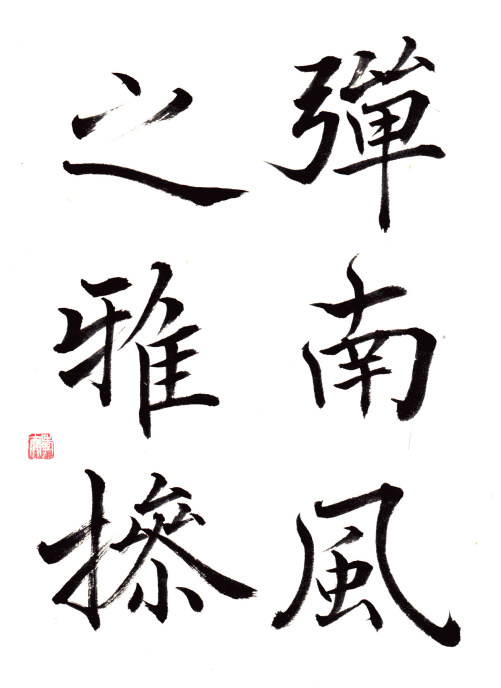 彈南風
之雅操